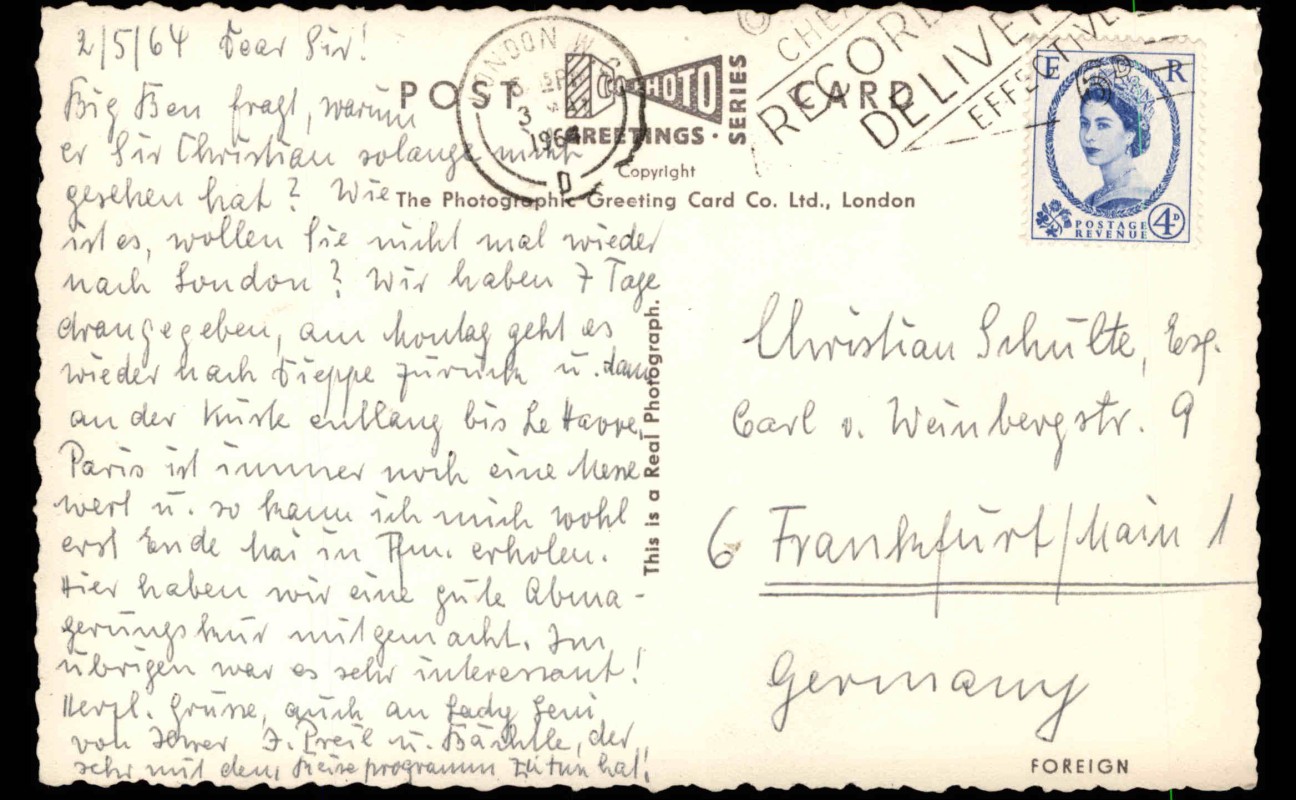 2/5/64 Dear Sir!
Big Ben fragt, warum
er Sir Christian solange nicht
gesehen hat? Wie
ist es, wollen Sie nicht mal wieder
nach London? Wir haben 7 Tage
drangegeben, am Montag geht es
wieder nach Dieppe zurück u. dann
an der Küste entlang bis Le Havre,
Paris ist immer noch eine Messe
wert u. so kann ich mich wohl
erst Ende Mai in Ffm. erholen.
Hier haben wir eine gute Abma-
gerungskur mitgemacht. Im
übrigen war es sehr interessant!
Herzl. Grüsse, auch an Lady Leni,
von Ihrer J. Preil u. Bächtle, der
sehr mit dem Reiseprogramm zu tun hat!
POST CARD
PHOTO
GREETINGS · SERIES
Copyright
The Photographic Greeting Card Co. Ltd., London
This is a Real Photograph.
LONDON W.C.
3
1964
D
RECORD
DELIVE
EFFECTIVE
E R
POSTAGE
REVENUE
4D
Christian Schulte, Esq.
Carl v. Weinbergstr. 9
6 Frankfurt/Main 1
Germany
FOREIGN